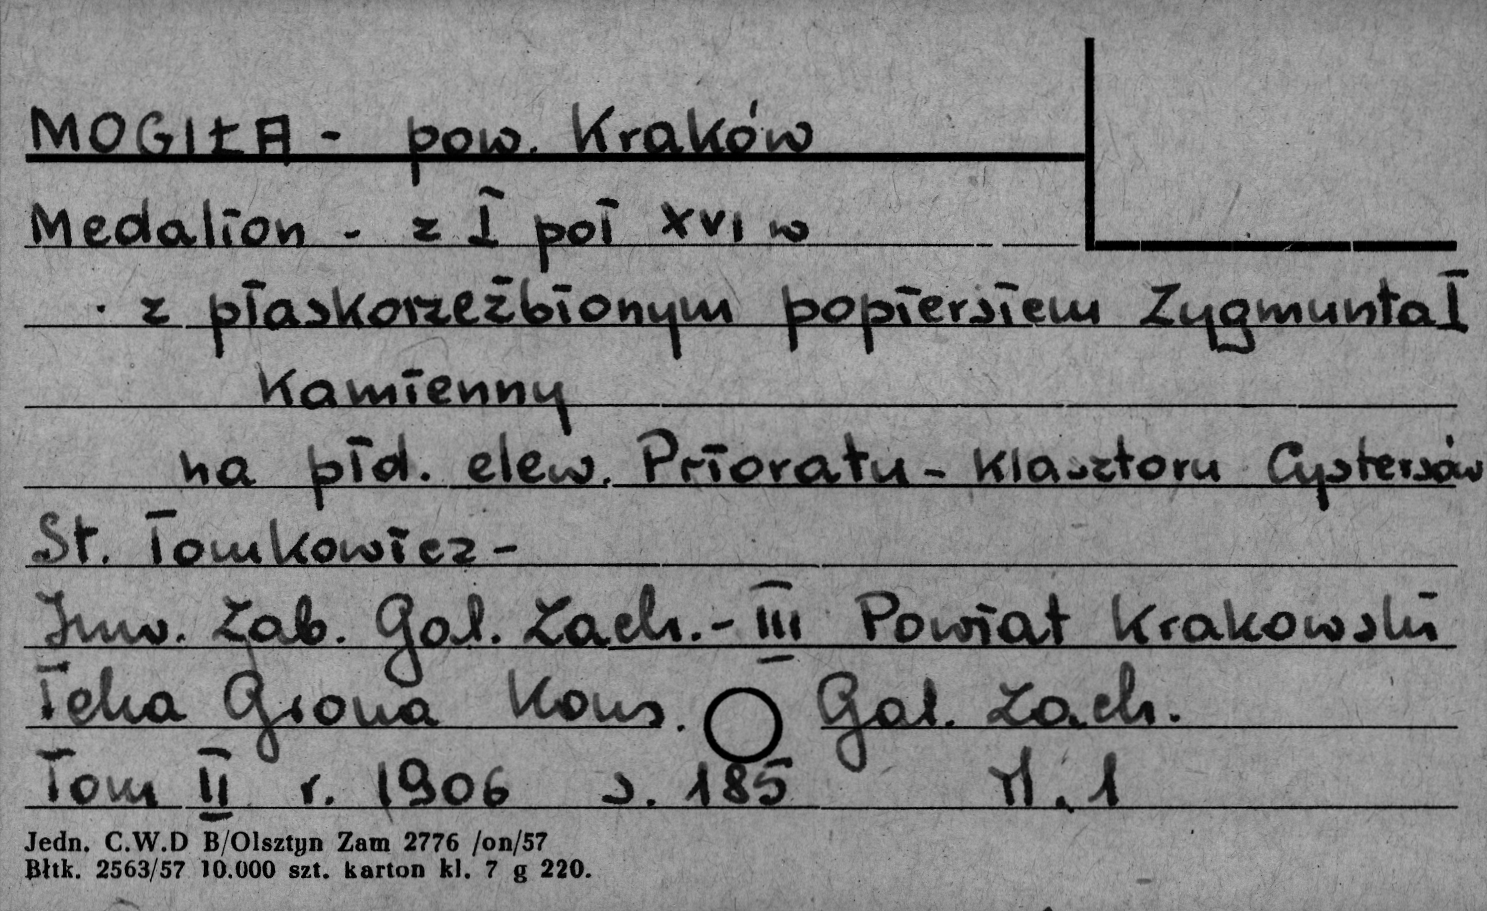 MOGIŁA - pow. Kraków
Medalion - z I poł XVI w
z płaskorzeźbionym popiersiem Zygmunta I
Kamienny
na płd. elew. Prioratu - Klasztoru Cystersów
St. Tomkowicz -
Inw. Zab. Gal. Zach. - III Powiat Krakowski
Teka Grona Kons. Gal. Zach.
Tom II r. 1906 s. 185
Jedn. C.W.D B/Olsztyn Zam 2776 /on/57
Błtk. 2563/57 10.000 szt. karton kl. 7 g 220.